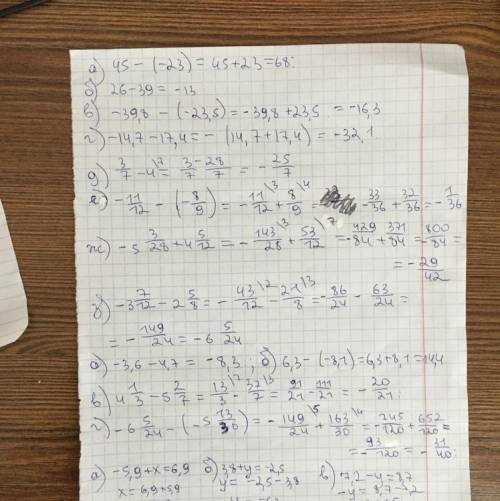 а) 45 − (−23) = 45 + 23 = 68;
б) 26 − 39 = −13
в) −39,8 − (−23,5) = −39,8 + 23,5 = −16,3
г) −14,7 − 17,4 = −(14,7 + 17,4) = −32,1
д) 3/7 − 4\7 = 3 − 28/7 = −25/7
е) −11/12 − (−8/9) = −11/12\3 + 8/9\4 = −33/36 + 32/36 = −1/36
ж) −5 3/28 + 4 5/12 = −143/28\3 + 53/12\7 = −429/84 + 371/84 = −800/84 =
= −29/42
з) −3 7/12 − 2 5/8 = −43/12\2 − 21/8\3 = −86/24 − 63/24 =
= −149/24 = −6 5/24
а) −3,6 − 4,7 = −8,3; б) 6,3 − (−8,1) = 6,3 + 8,1 = 14,4
в) 4 1/3 − 5 2/7 = 13/3\7 − 37/7\3 = 91/21 − 111/21 = −20/21;
г) −6 5/24 − (−5 13/30) = −149/24\5 + 163/30\4 = −745/120 + 652/120 =
= −93/120 = −31/40;
а) −5,9 + x = 6,9 б) 3,8 + y = −2,5 в) 7,2 − y = 8,7
x = 6,9 + 5,9 y = −2,5 − 3,8 −y = 8,7 − 7,2